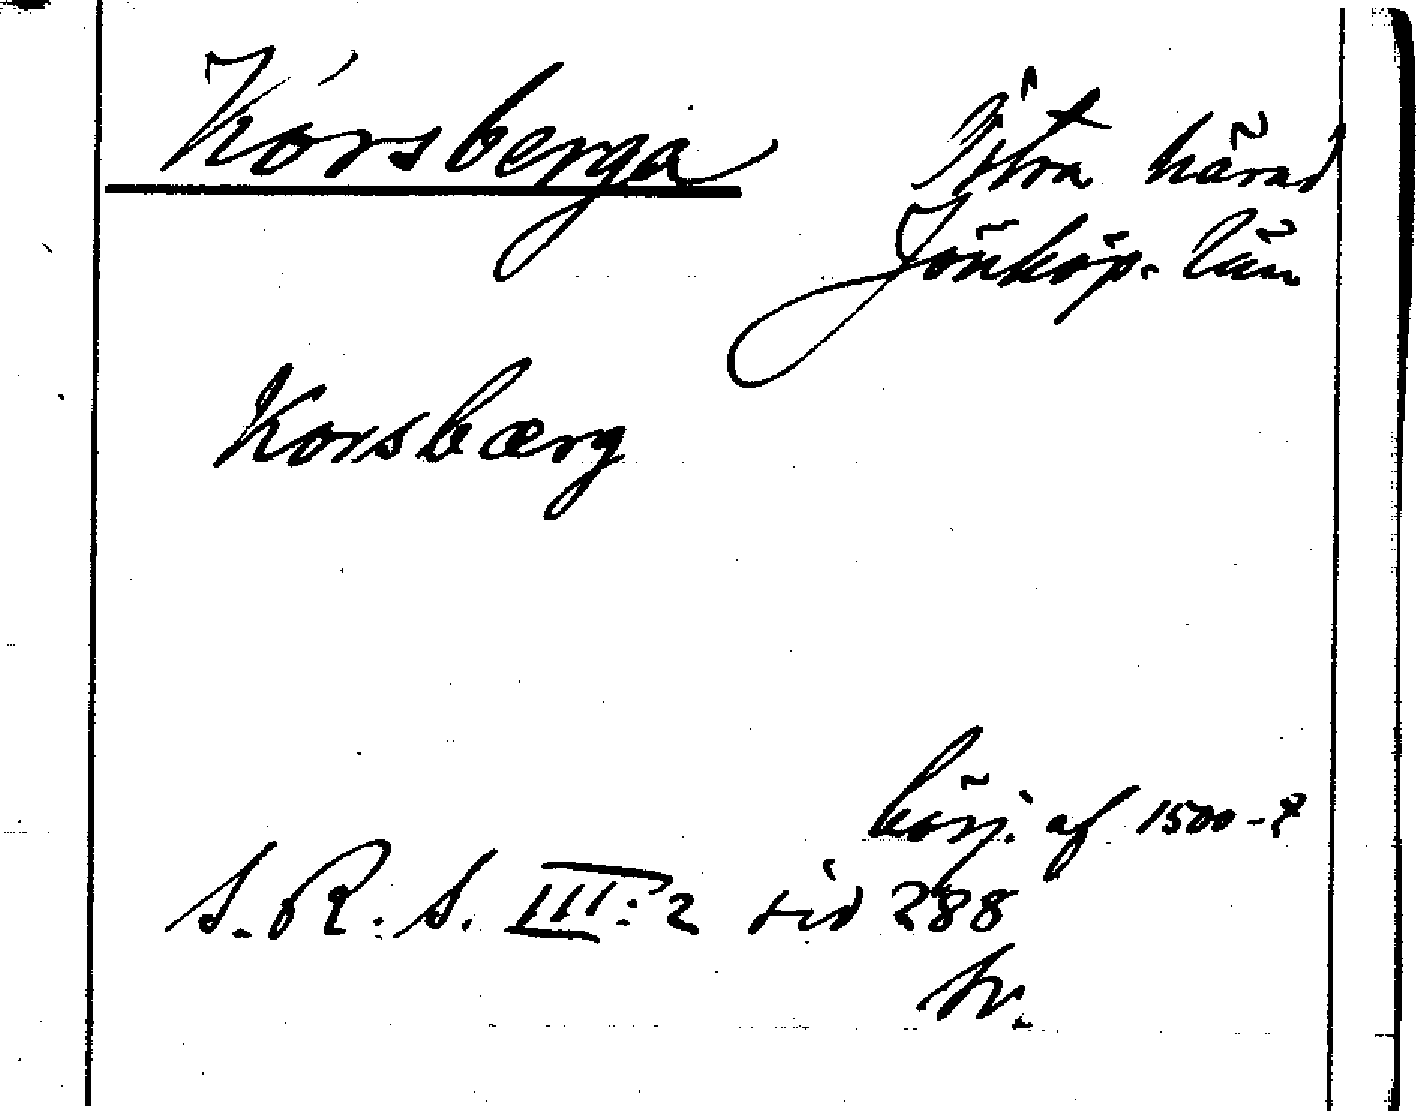 Korsberga
Östra härad
Jönköp. län
Korsbærg
börj. af 1500-t
S. R. S. III:2 sid 288
tr.